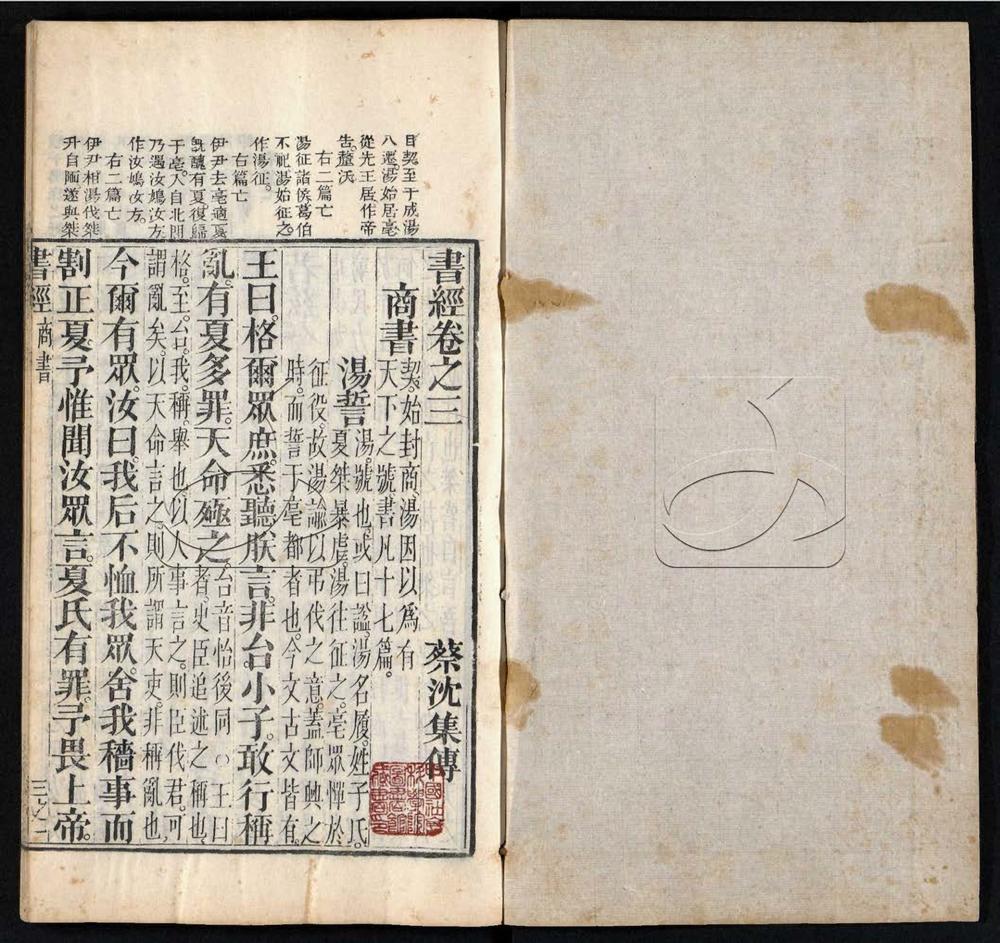 自契至于成湯
八遷。湯始居亳
從先王居作帝
告。釐沃
右二篇亡
湯征諸侯葛伯
不祀湯始征之
作湯征。
右一篇亡
伊尹去亳適夏
旣醜有夏復歸
于亳。入自北門
乃遇汝鳩汝方
作汝鳩汝方。
右二篇亡
伊尹相湯伐桀
升自陑遂與桀
書經卷之三 蔡沈集傳
商書 契始封商、湯因以爲有
天下之號、書凡十七篇。
湯誓 湯。號也。或曰諡。湯名履。姓子氏。
夏桀暴虐。湯往征之。亳眾憚於
征役。故湯諭以弔伐之意。蓋師興之
時。而誓于亳都者也。今文古文皆有。
王曰。格爾眾庶。悉聽朕言。非台小子。敢行稱
亂。有夏多罪。天命殛之。 台音怡後同○王曰
者。史臣追述之稱也。
格。至。台。我。稱。舉也。以人事言之。則臣伐君。可
謂亂矣。以天命言之。則所謂天吏。非稱亂也
今爾有眾。汝曰。我后不恤我眾。舍我穡事而
割正夏。予惟聞汝眾言。夏氏有罪。予畏上帝。
書經 商書 三